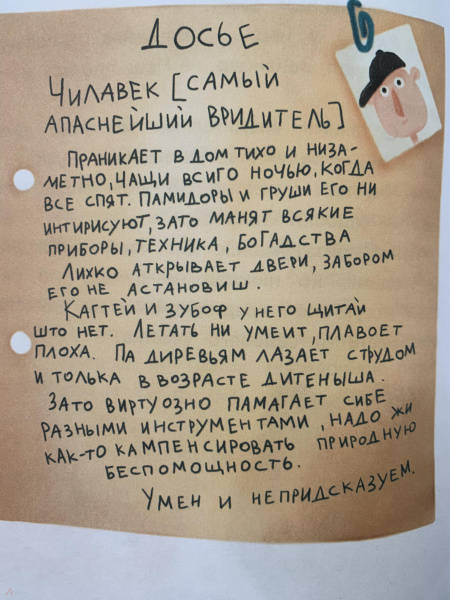 ДОСЬЕ
ЧИЛАВЕК [САМЫЙ
АПАСНЕЙШИЙ ВРИДИТЕЛЬ]
ПРАНИКАЕТ В ДОМ ТИХО И НИЗА-
МЕТНО, ЧАЩИ ВСИГО НОЧЬЮ, КОГДА
ВСЕ СПЯТ. ПАМИДОРЫ И ГРУШИ ЕГО НИ
ИНТИРИСУЮТ, ЗАТО МАНЯТ ВСЯКИЕ
ПРИБОРЫ, ТЕХНИКА, БОГАДСТВА
ЛИХКО АТКРЫВАЕТ ДВЕРИ, ЗАБОРОМ
ЕГО НЕ АСТАНОВИШ.
КАГТЕЙ И ЗУБОФ У НЕГО ЩИТАЙ
ШТО НЕТ. ЛЕТАТЬ НИ УМЕИТ, ПЛАВОЕТ
ПЛОХА. ПА ДИРЕВЬЯМ ЛАЗАЕТ СТРУДОМ
И ТОЛЬКА В ВОЗРАСТЕ ДИТЕНЫША.
ЗАТО ВИРТУОЗНО ПАМАГАЕТ СИБЕ
РАЗНЫМИ ИНСТРУМЕНТАМИ, НАДО ЖИ
КАК-ТО КАМПЕНСИРОВАТЬ ПРИРОДНУЮ
БЕСПОМОЩНОСТЬ.
УМЕН И НЕПРИДСКАЗУЕМ.